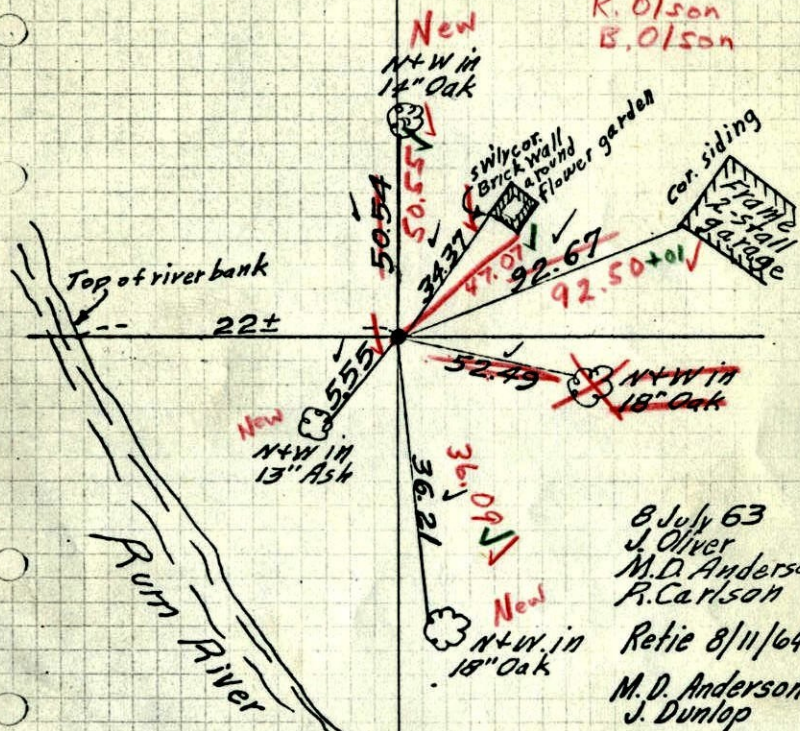 R. Olson
B. Olson
New
N+W in
14" Oak
50.54
50.55
swly cor.
Brick wall
around
flower garden
34.37
47.07
cor. siding
Frame
2-stall
garage
92.67
92.50 +01
Top of river bank
22±
52.49
N+W in
18" Oak
5.55
New
N+W in
13" Ash
36.21
36.09
New
N+W. in
18" Oak
Rum River
8 July 63
J. Oliver
M.D. Anderso
R. Carlson
Retie 8/11/64
M.D. Anderson
J. Dunlop